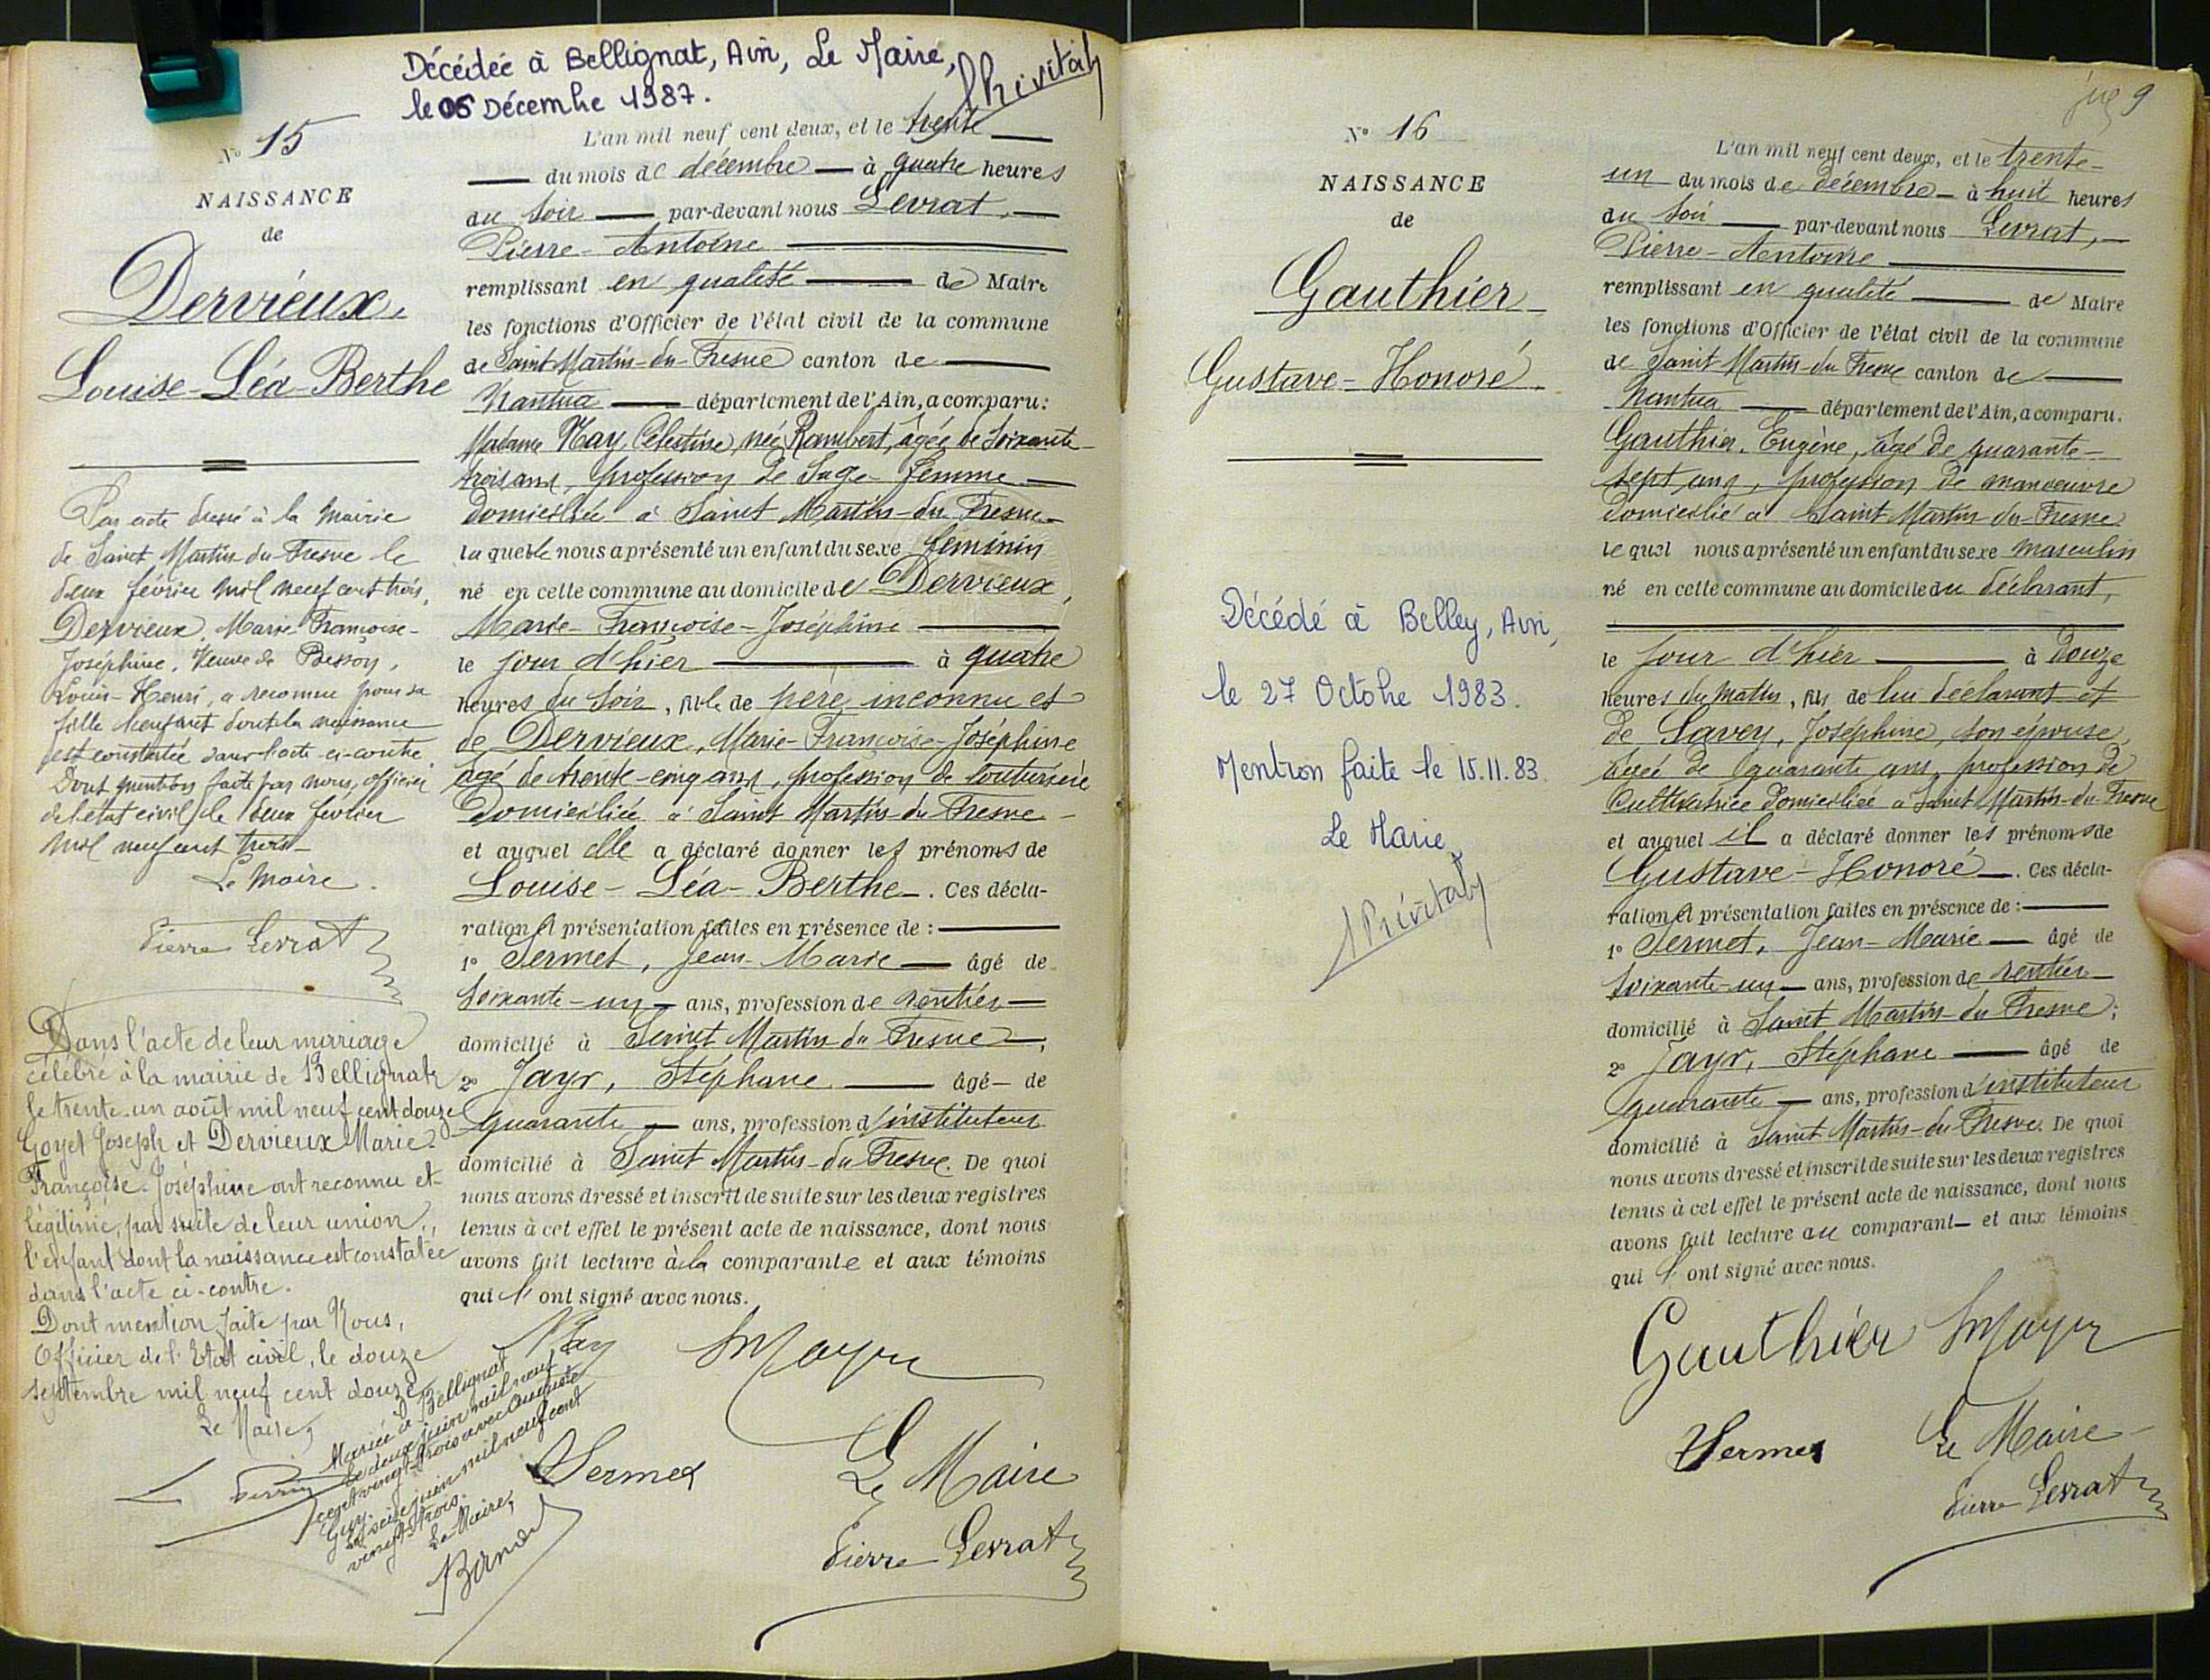 Décédée à Bellignat, Ain, Le Maire,
le 05 Décembre 1987.
N° 15
NAISSANCE
de
Dervieux,
Louise-Léa-Berthe
Par acte dressé à la Mairie
de Saint Martin-du-Fresne le
deux février mil neuf cent trois,
Dervieux, Marie Françoise-
Joséphine, Veuve de Besson,
Louis-Henri, a reconnu pour sa
fille l'enfant dont la naissance
est constatée dans l'acte ci-contre.
Dont mention faite par nous, officier
de l'état civil, le deux février
mil neuf cent trois_
Le Maire.
Pierre Levrat
Dans l'acte de leur mariage
célébré à la mairie de Bellignat
le trente-un août mil neuf cent douze
Goyet Joseph et Dervieux Marie-
Françoise-Joséphine ont reconnu et
légitimé, par suite de leur union,
l'enfant dont la naissance est constatée
dans l'acte ci-contre.
Dont mention faite par Nous,
Officier de l'Etat civil, le douze
septembre mil neuf cent douze.
Le Maire,
Mariée à Bellignat
le deux juin mil neuf
cent vingt-trois avec Auguste
Guy.
Le seize juin mil neuf cent
vingt-trois.
Le Maire,
L'an mil neuf cent deux, et le trente
du mois de décembre à quatre heures
du soir par-devant nous Levrat,
Pierre-Antoine
remplissant en qualité de Maire
les fonctions d'Officier de l'état civil de la commune
de Saint Martin-du-Fresne canton de
Nantua département de l'Ain, a comparu:
Madame May, Célestine, née Rambert, âgée de soixante-
trois ans, profession de Sage-femme
domiciliée à Saint Martin-du-Fresne
laquelle nous a présenté un enfant du sexe féminin
né en cette commune au domicile de Dervieux,
Marie-Françoise-Joséphine
le jour d'hier à quatre
heures du soir, fille de père inconnu et
de Dervieux, Marie-Françoise-Joséphine
âgé de trente-cinq ans, profession de couturière
domiciliée à Saint Martin-du-Fresne
et auquel elle a déclaré donner les prénoms de
Louise-Léa-Berthe. Ces décla-
ration et présentation faites en présence de :
1° Sermet, Jean-Marie âgé de
soixante-un ans, profession de rentier
domicilié à Saint Martin-du-Fresne;
2° Jayr, Stéphane âgé de
quarante ans, profession d'instituteur
domicilié à Saint Martin-du-Fresne. De quoi
nous avons dressé et inscrit de suite sur les deux registres
tenus à cet effet le présent acte de naissance, dont nous
avons fait lecture à la comparante et aux témoins
qui l'ont signé avec nous.
May
Sermet
Le Maire
Pierre Levrat
9
N° 16
NAISSANCE
de
Gauthier
Gustave-Honoré
Décédé à Belley, Ain,
le 27 Octobre 1983.
Mention faite le 15.11.83.
Le Maire
L'an mil neuf cent deux, et le trente-
un du mois de décembre à huit heures
du soir par-devant nous Levrat,
Pierre-Antoine
remplissant en qualité de Maire
les fonctions d'Officier de l'état civil de la commune
de Saint Martin-du-Fresne canton de
Nantua département de l'Ain, a comparu.
Gauthier, Eugène, âgé de quarante-
sept ans, profession de manœuvre
domicilié à Saint Martin-du-Fresne
lequel nous a présenté un enfant du sexe masculin
né en cette commune au domicile du déclarant,
le jour d'hier à douze
heures du matin, fils de lui déclarant et
de Savey, Joséphine, son épouse,
âgée de quarante ans, profession de
Cultivatrice domiciliée à Saint Martin-du-Fresne
et auquel il a déclaré donner les prénoms de
Gustave-Honoré. Ces décla-
ration et présentation faites en présence de :
1° Sermet, Jean-Marie âgé de
soixante-un ans, profession de rentier
domicilié à Saint Martin-du-Fresne;
2° Jayr, Stéphane âgé de
quarante ans, profession d'instituteur
domicilié à Saint Martin-du-Fresne. De quoi
nous avons dressé et inscrit de suite sur les deux registres
tenus à cet effet le présent acte de naissance, dont nous
avons fait lecture au comparant et aux témoins
qui l'ont signé avec nous.
Gauthier
Sermet
Le Maire
Pierre Levrat